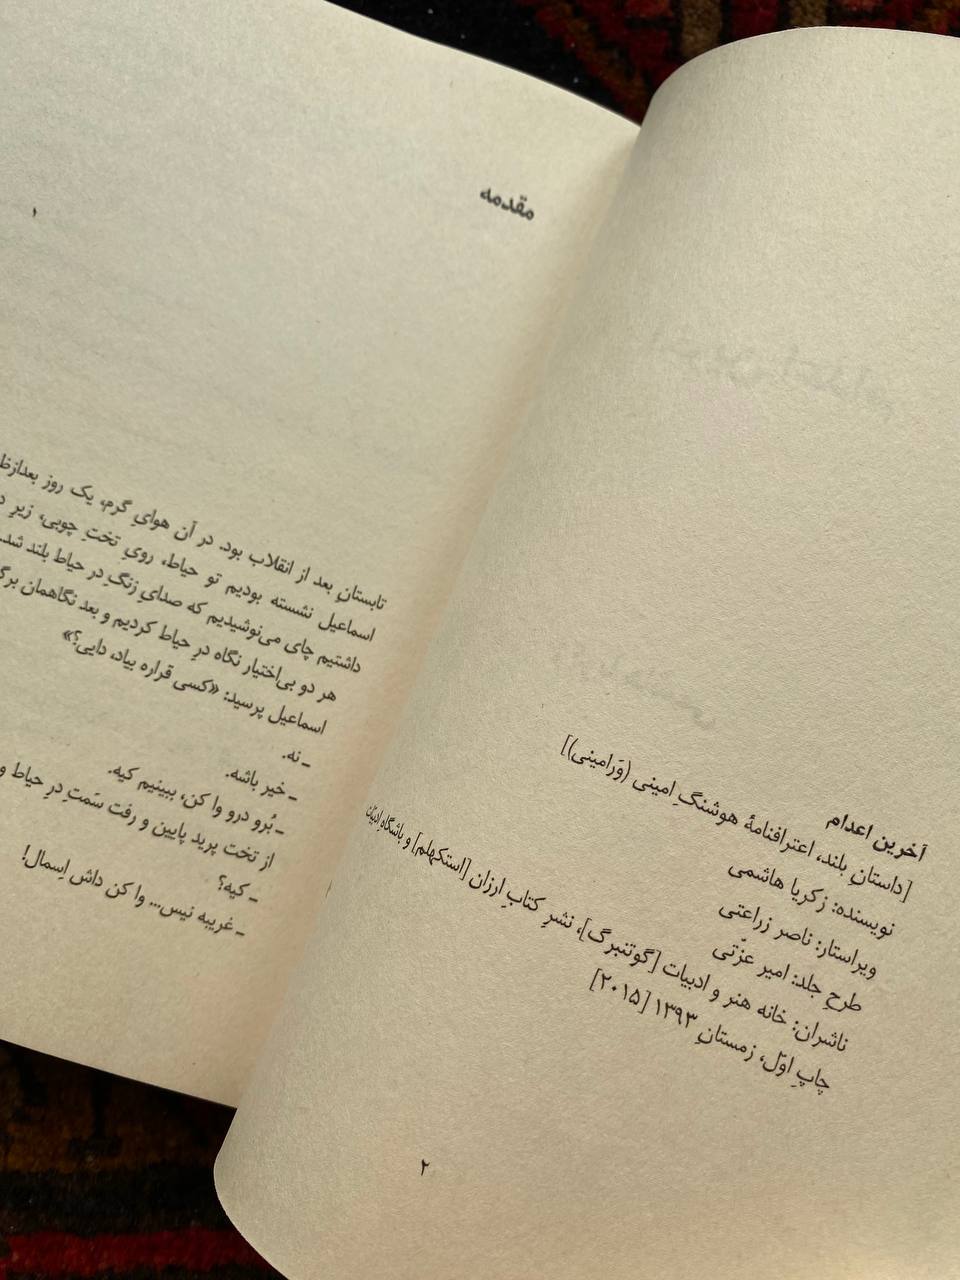 آخرین اعدام
[داستانِ بلند، اعترافنامهٔ هوشنگِ امینی (وَرامینی)]
نویسنده: زکریا هاشمی
ویراستار: ناصر زراعتی
طرحِ جلد: امیر عزّتی
ناشران: خانه هنر و ادبیات [گوتنبرگ]، نشرِ کتابِ ارزان [استکهلم] و باشگاهِ ادبیّات
چاپِ اوّل، زمستانِ ۱۳۹۳ [۲۰۱۵]
۲
مقدمه
۱
تابستانِ بعد از انقلاب بود. در آن هوایِ گرم، یک روز
اسماعیل نشسته بودیم تو حیاط، رویِ تختِ چوبی، زیرِ
داشتیم چای می‌نوشیدیم که صدایِ زنگِ درِ حیاط بلند شد.
هر دو بی‌اختیار نگاه درِ حیاط کردیم و بعد نگاهمان
اسماعیل پرسید: «کسی قراره بیاد، دایی؟»
ـ نه.
ـ خیر باشه.
ـ بُرو درو وا کن، ببینیم کیه.
از تخت پرید پایین و رفت سَمتِ درِ حیاط و
ـ کیه؟
ـ غریبه نیس... وا کن داش اِسمال!